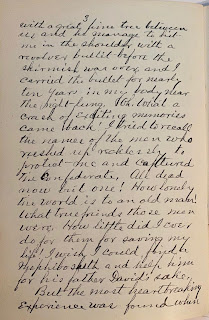 3
with a great pine tree between
us, and he manage to hit
me in the shoulder with a
revolver bullet before the
skirmish was over, and I
carried the bullet for nearly
ten years in my body near
the right lung. Oh. What a
crash of exciting memories
came back! I tried to recall
the names of the men who
rushed up recklessly to
protect me and captured
the Confederate. All dead
now but one! How lonely
the world is to an old man!
What true friends those men
were. How little did I ever
do for them for saving my
life! I wish I could find a
Mephibosheth and help him
for his father David's sake.
But the most heartbreaking
experience was found when